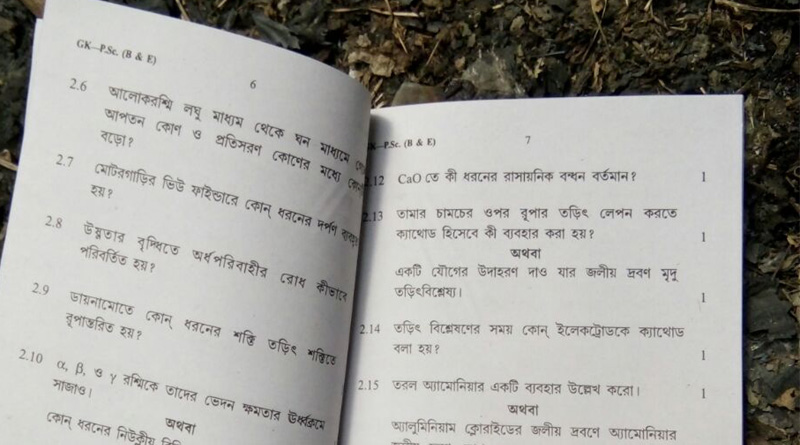 GK—P.Sc. (B & E)
6
2.6 আলোকরশ্মি লঘু মাধ্যম থেকে ঘন মাধ্যমে
আপতন কোণ ও প্রতিসরণ কোণের মধ্যে
বড়ো?
2.7 মোটরগাড়ির ভিউ ফাইন্ডারে কোন্ ধরনের দর্পণ
হয়?
2.8 উষ্ণতার বৃদ্ধিতে অর্ধপরিবাহীর রোধ কীভাবে
পরিবর্তিত হয়?
2.9 ডায়নামোতে কোন্ ধরনের শক্তি তড়িৎ শক্তিতে
রূপান্তরিত হয়?
2.10 α, β, ও γ রশ্মিকে তাদের ভেদন ক্ষমতার ঊর্ধ্বক্রমে
সাজাও।
অথবা
কোন্ ধরনের নিউক্লীয়
—P.Sc. (B & E)
7
2.12 CaO তে কী ধরনের রাসায়নিক বন্ধন বর্তমান? 1
2.13 তামার চামচের ওপর রূপার তড়িৎ লেপন করতে
ক্যাথোড হিসেবে কী ব্যবহার করা হয়? 1
অথবা
একটি যৌগের উদাহরণ দাও যার জলীয় দ্রবণ মৃদু
তড়িৎবিশ্লেষ্য। 1
2.14 তড়িৎ বিশ্লেষণের সময় কোন্ ইলেকট্রোডকে ক্যাথোড
বলা হয়? 1
2.15 তরল অ্যামোনিয়ার একটি ব্যবহার উল্লেখ করো। 1
অথবা
অ্যালুমিনিয়াম ক্লোরাইডের জলীয় দ্রবণে অ্যামোনিয়ার